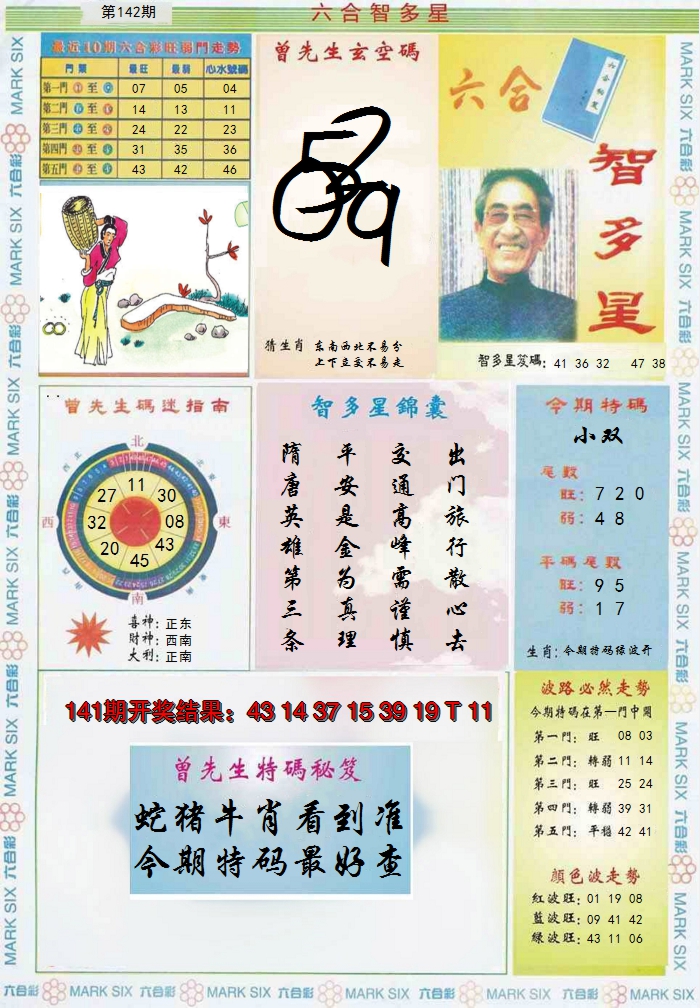 第142期
六合智多星
最近10期六合彩旺弱門走勢
門類 最旺 最弱 心水號碼
第一門 至 07 05 04
第二門 至 14 13 11
第三門 至 24 22 23
第四門 至 31 35 36
第五門 至 43 42 46
曾先生玄空碼
猜生肖 东南西北不易分
上下立交不易走
六合
智多星
智多星笈碼: 41 36 32 47 38
曾先生碼迷指南
北
東
南
西
11
30
08
43
45
20
32
27
喜神: 正东
財神: 西南
大利: 正南
智多星錦囊
出门旅行散心去
交通高峰需谨慎
平安是金为真理
隋唐英雄第三条
今期特碼
小双
尾數
旺: 7 2 0
弱: 4 8
平碼尾數
旺: 9 5
弱: 1 7
生肖: 今期特码绿波开
141期开奖结果: 43 14 37 15 39 19 T 11
曾先生特碼秘笈
蛇猪牛肖看到准
今期特码最好查
波路必然走勢
今期特碼在第一門中開
第一門: 旺 08 03
第二門: 轉弱 11 14
第三門: 旺 25 24
第四門: 轉弱 39 31
第五門: 平穩 42 41
顏色波走勢
紅波旺: 01 19 08
藍波旺: 09 41 42
綠波旺: 43 11 06
MARK SIX 六合彩